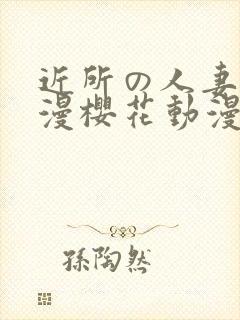 近所の人妻
漫櫻花動漫
孫陶然